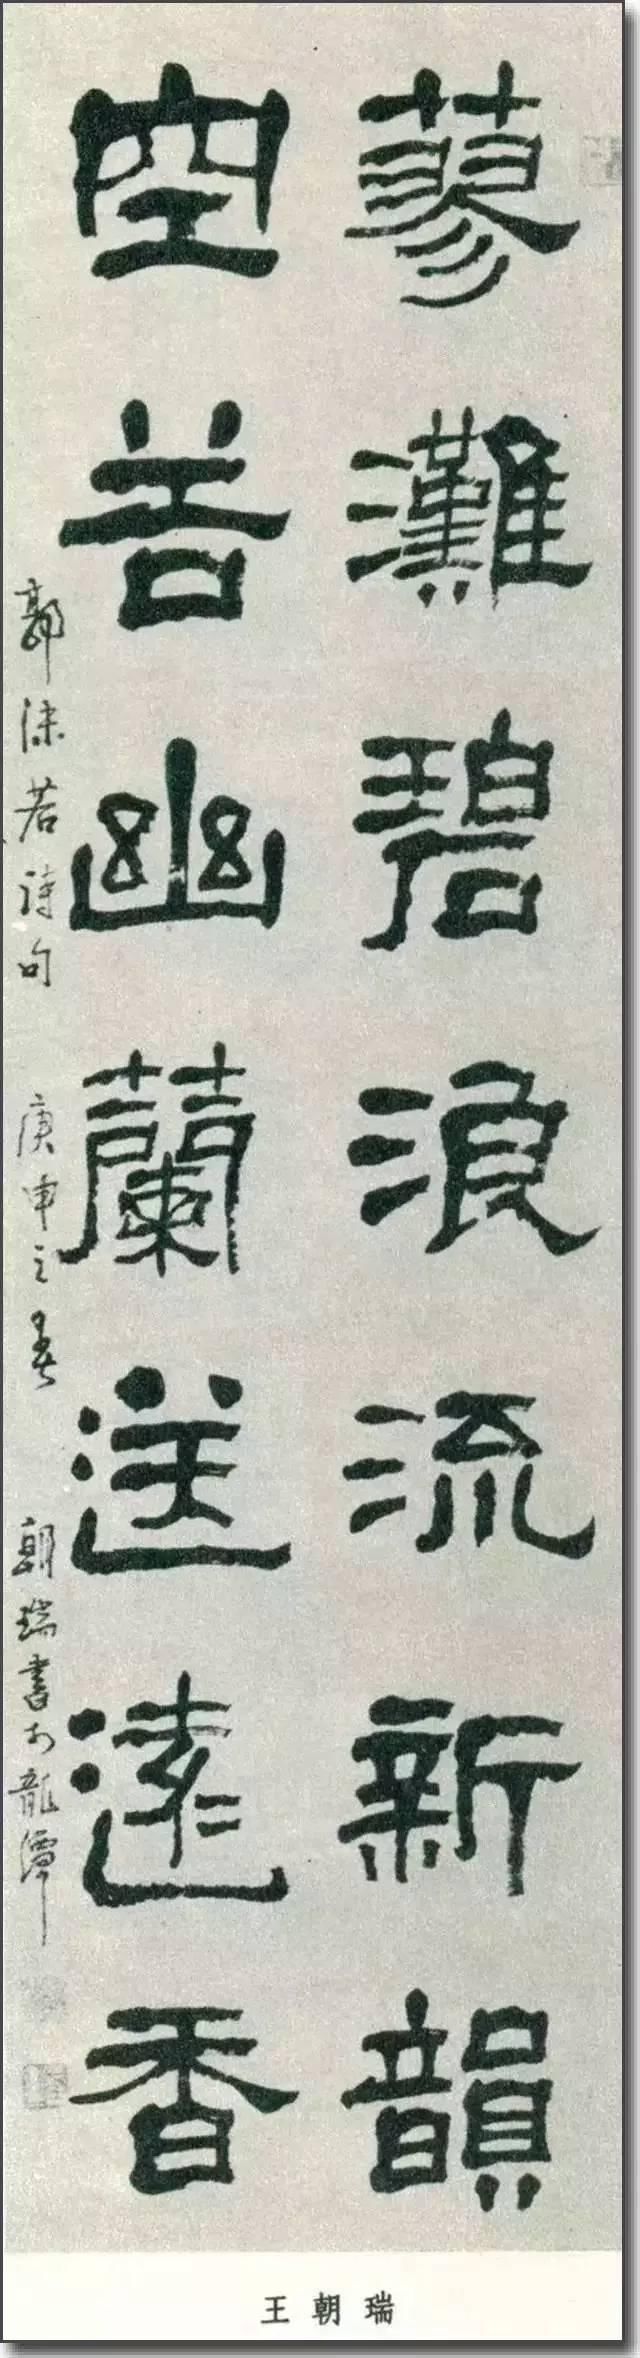 蓼灘碧浪流新韻
空谷幽蘭送遠香
郭沫若詩句 庚申之春 朝瑞書於龍潭
王朝瑞